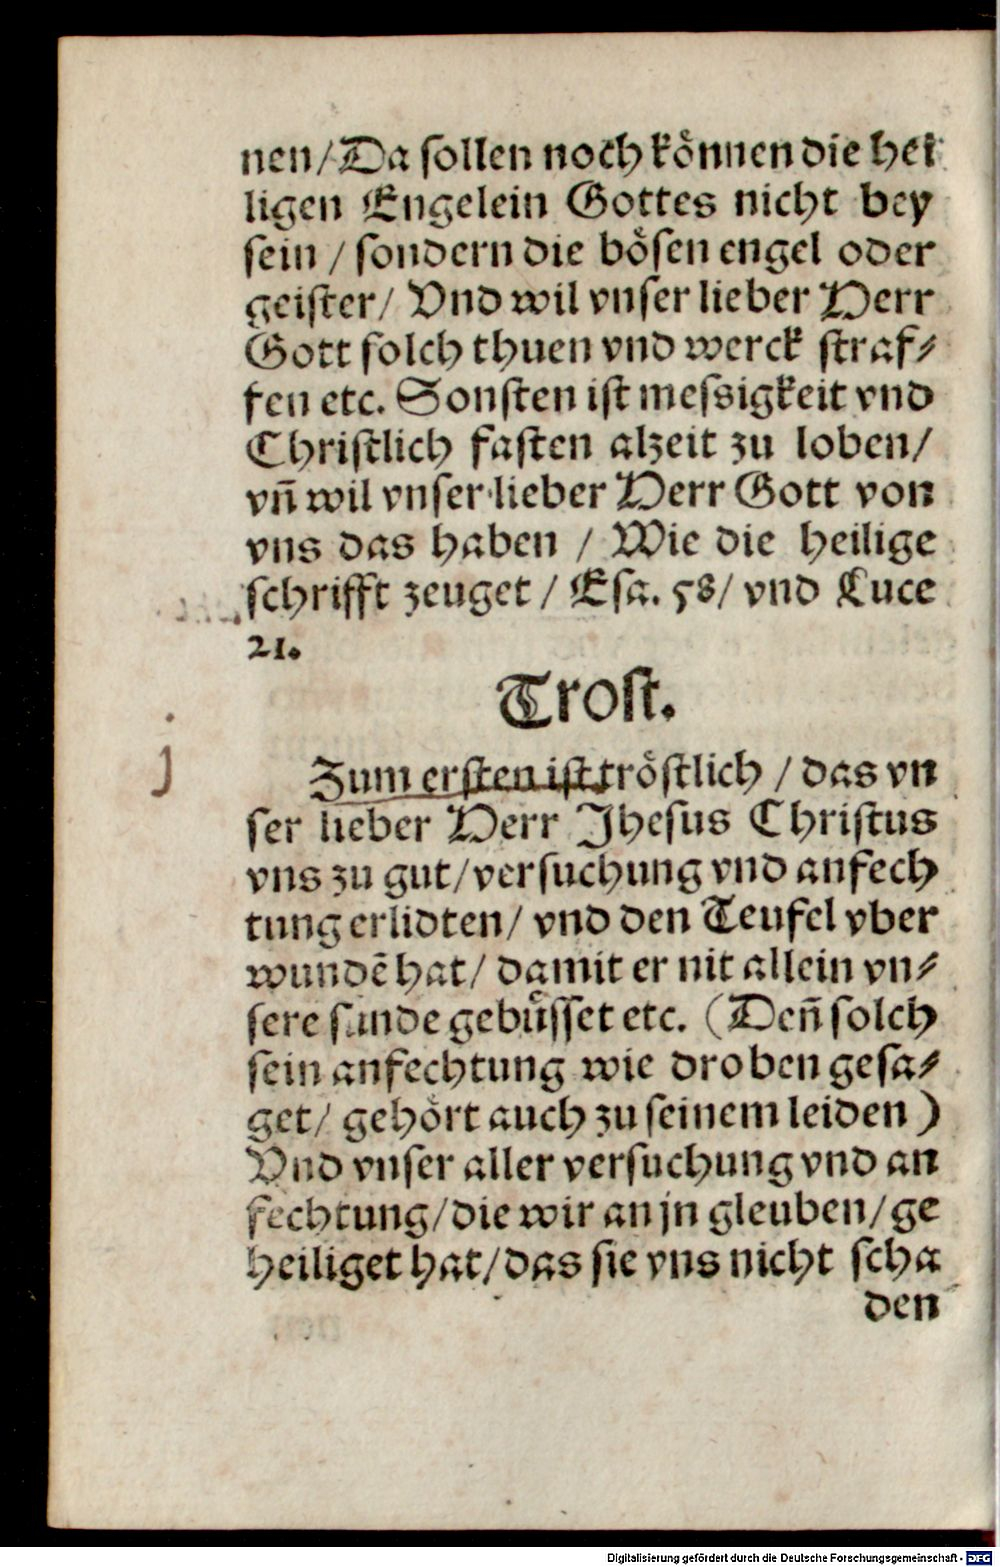 nen/ Da sollen noch können die hei
ligen Engelein Gottes nicht bey
sein / sondern die bösen engel oder
geister/ Vnd wil vnser lieber Herr
Gott solch thuen vnd werck straf⸗
fen etc. Sonsten ist messigkeit vnd
Christlich fasten alzeit zu loben/
vn̄ wil vnser lieber Herr Gott von
vns das haben / Wie die heilige
schrifft zeuget / Esa. 58/ vnd Luce
21.
Trost.
j
Zum ersten ist tröstlich / das vn
ser lieber Herr Jhesus Christus
vns zu gut/ versuchung vnd anfech
tung erlidten/ vnd den Teufel vber
wundē hat/ damit er nit allein vn⸗
sere sunde gebüsset etc. (Den̄ solch
sein anfechtung wie droben gesa⸗
get/ gehört auch zu seinem leiden)
Vnd vnser aller versuchung vnd an
fechtung/ die wir an jn gleuben/ ge
heiliget hat/ das sie vns nicht scha
den
Digitalisierung gefördert durch die Deutsche Forschungsgemeinschaft - DFG